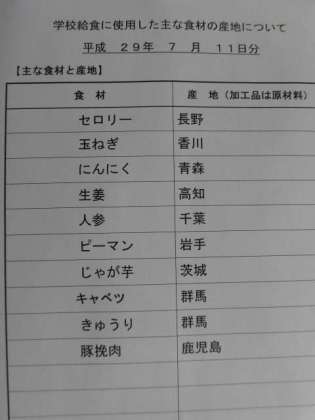 学校給食に使用した主な食材の産地について
平成 29年 7 月 11日分
【主な食材と産地】
食 材 産 地（加工品は原材料）
セロリー 長野
玉ねぎ 香川
にんにく 青森
生姜 高知
人参 千葉
ピーマン 岩手
じゃが芋 茨城
キャベツ 群馬
きゅうり 群馬
豚挽肉 鹿児島